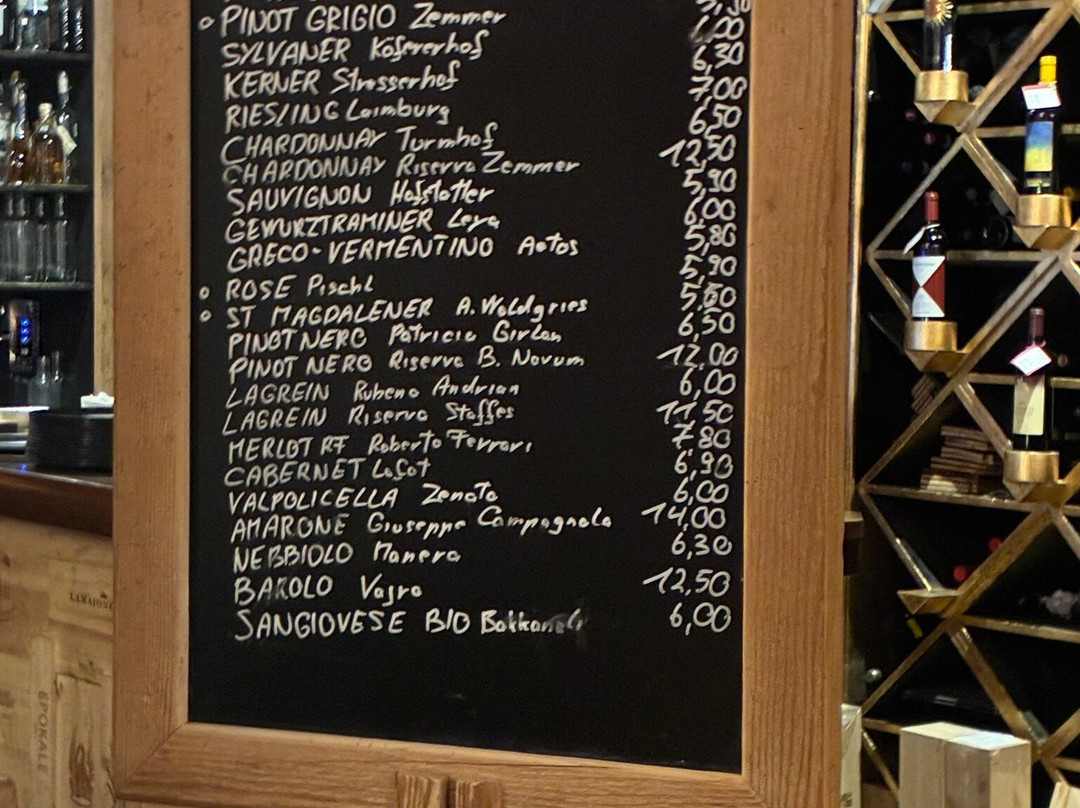 PINOT GRIGIO Zemmer 5,50
SYLVANER Köfererhof 6,00
KERNER Strasserhof 6,30
RIESLING Laimburg 7,00
CHARDONNAY Turmhof 6,50
CHARDONNAY Riserva Zemmer 12,50
SAUVIGNON Hofstatter 5,90
GEWURZTRAMINER Leya 6,00
GRECO-VERMENTINO Aotos 5,80
ROSE Pischl 5,90
ST MAGDALENER A. Waldgries 5,60
PINOT NERO Patricia Girlan 6,50
PINOT NERO Riserva B. Novum 12,00
LAGREIN Rubeno Andrian 6,00
LAGREIN Riserva Staffes 11,50
MERLOT RF Roberto Ferrari 7,80
CABERNET Lafot 6,90
VALPOLICELLA Zenato 6,00
AMARONE Giuseppe Campagnola 14,00
NEBBIOLO Manera 6,30
BAROLO Vajra 12,50
SANGIOVESE BIO 6,00
EPOKALE